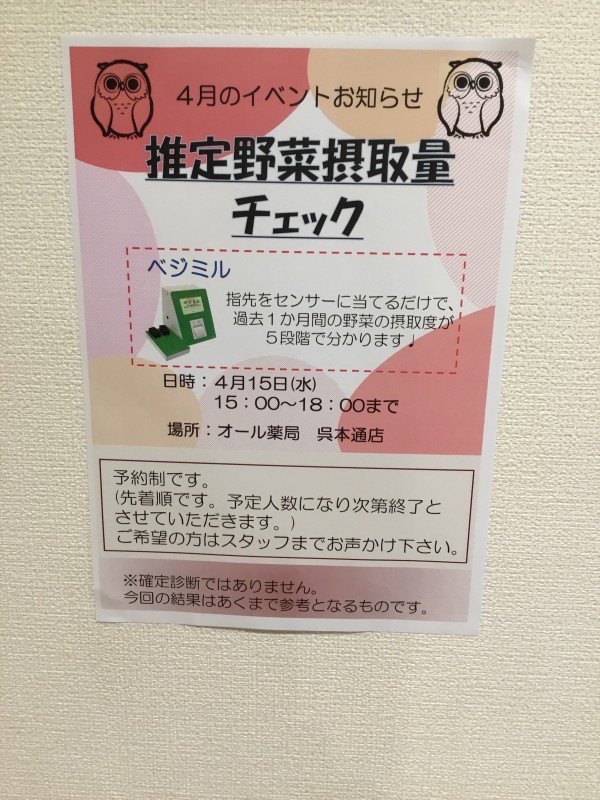 4月のイベントお知らせ
推定野菜摂取量
チェック
ベジミル
指先をセンサーに当てるだけで、
過去1か月間の野菜の摂取度が
5段階で分かります♩
日時：4月15日(水)
15：00〜18：00まで
場所：オール薬局　呉本通店
予約制です。
(先着順です。予定人数になり次第終了と
させていただきます。)
ご希望の方はスタッフまでお声かけ下さい。
※確定診断ではありません。
今回の結果はあくまで参考となるものです。